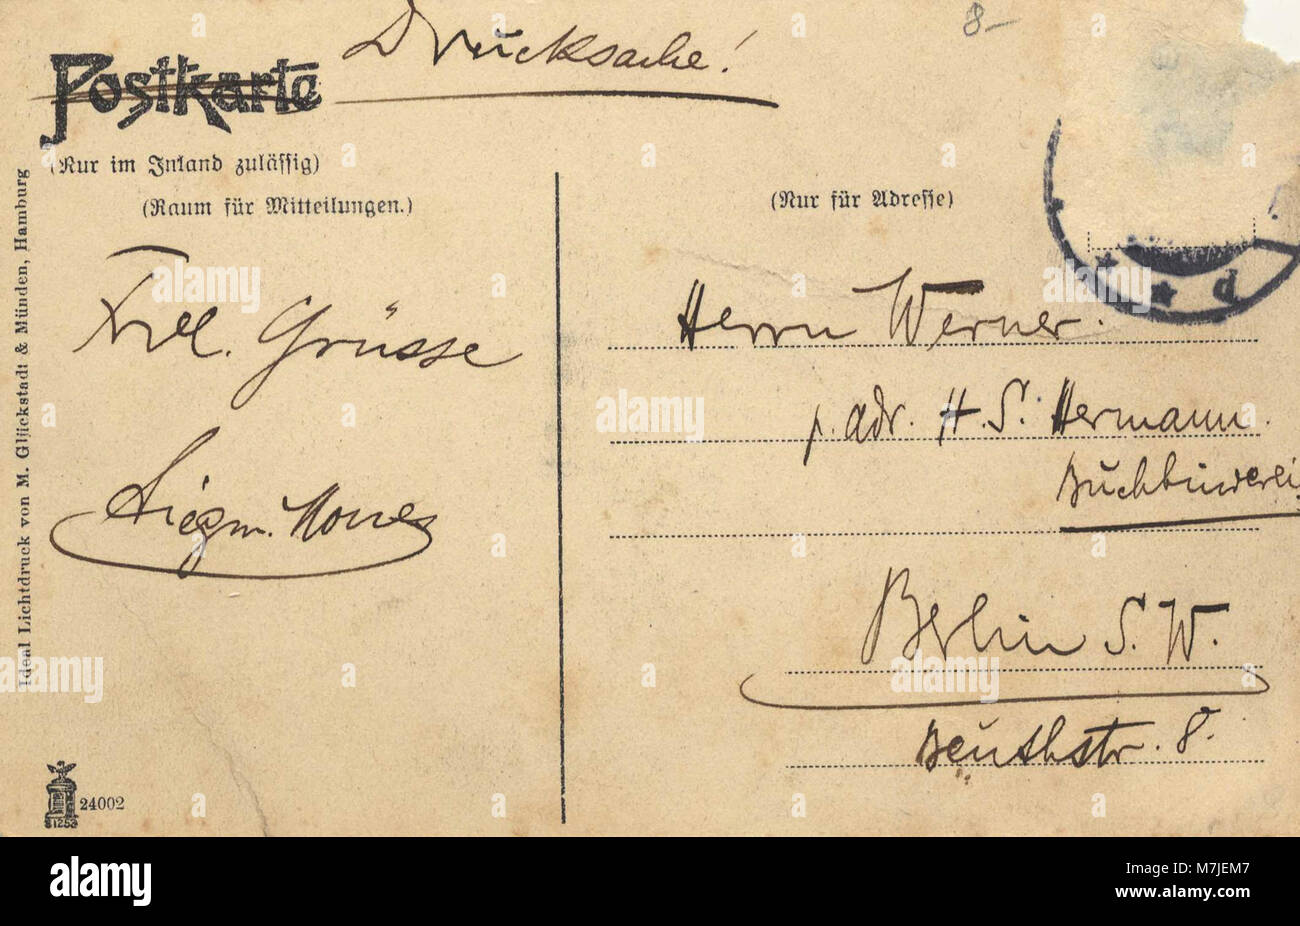 Drucksache!
8-
Postkarte
(Nur im Inland zulässig)
(Raum für Mitteilungen.)
(Nur für Adresse)
Frdl. Grüsse
Siegm.
Herrn Werner.
p. adr. H. S. Hermann.
Buchbinderei
Berlin S. W.
Beuthstr. 8.
Ideal Lichtdruck von M. Glückstadt & Münden, Hamburg
24002
alamy
Image ID: M7JEM7
www.alamy.com